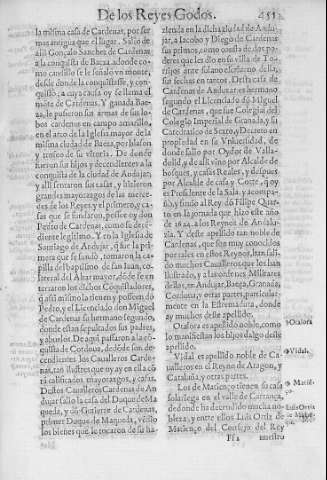 De los Reyes Godos. 451
la misma casa de Cardenas, por ser
mas antigua que el lugar. Salió de
alli Gonçalo Sanchez de Cardenas
a la conquista de Baeça, adonde co-
mo caudillo se le señaló vn monte,
desde donde la conquistasse, y con-
quistó: a cuya causa oy se llama el
monte de Cardenas. Y ganada Bae-
ça, le pusieron sus armas de sus lo-
bos cardenos en campo amarillo,
en el arco de la Iglesia mayor de la
misma ciudad de Baeça, por blason
y trofeo de su vitoria. De donde
fueron sus hijos y decendientes a la
conquista de la ciudad de Andujar,
y alli sentaron sus casas, y hizieron
grandes mayorazgos de las merce-
des de los Reyes, y el primero, y ca-
sas que se fundaron, possee oy don
Pedro de Cardenas, como su decé-
diente legitimo. Y en la Iglesia de
Santiago de Andujar, q̃ fue la pri-
mera que se fundó, tomaron la ca-
pilla del baptismo de san Iuan, co-
lateral del Altar mayor, dóde se en-
terraron los dichos Conquistadores,
q̃ assi mismo la tienen y posseen dó
Pedro, y el Licenciado don Miguel
de Cardenas su hermano segundo,
donde estan sepultados sus padres,
y abuelos. De aqui passaron a la có-
quista de Cordoua, de dóde son de-
cendientes los Caualleros Carde-
nas, tan ilustres que oy ay en ella có
tá calificados mayorazgos, y casas.
Destos Caualleros Cardenas de An-
dujar salio la casa del Duque de Ma-
queda, y dó Gutierre de Cardenas
primer Duque de Maqueda, vēdio
los bienes que le tocaron de su ha-
zienda en la dicha ciudad de Andu-
jar, a Iacobo y Diego de Cardenas
sus primos, como consta de dos po-
deres que les dio en su villa de Tor-
rijos ante
sus fechas en treze. Desta casa de
Cardenas de Andujar es hermano
segundo el Licenciado dó Miguel
de Cardenas, que fue Colegial del
Colegio Imperial de Granada, y su
Catedratico de Sexto, y Decreto en
propiedad en su Vniuersidad, de
donde salio por Oydor de Valla-
dolid, y de alli vino por Alcalde de
bosques, y casas Reales, y despues
por Alcalde de casa y Corte, q̃ oy
es Presidente de la Sala, y acompa-
ñó, y siruio al Rey dó Filipe Quar-
to en la jornada que hizo este año
de 1624. a los Reynos de Andalu-
zia. Y deste apellido tan noble de
Cardenas, que son muy conocidos
por tales en estos Reynos, han sali-
do muchos Caualleros que los han
ilustrado, y a las ordenes Militares
dellos, en Andujar, Baeça, Granada,
Cordoua, y otras partes, particular-
mente en la Estremadura, donde
ay muchos deste apellido.
Otalora es apellido noble, como
lo manifiestan los hijosdalgo deste
apellido.
Vidal es apellido noble de Ca-
ualleros en el Reyno de Aragon, y
Cataluña y otras partes.
Los de Matienço tienen su casa
solariega en el valle de Carrança,
de donde ha decendido mucha no-
bleza, y entre ellos Luis Ortiz de
Matienço del Consejo del Rey
nuestro
Otalora
Vidal.
Luis Ortiz